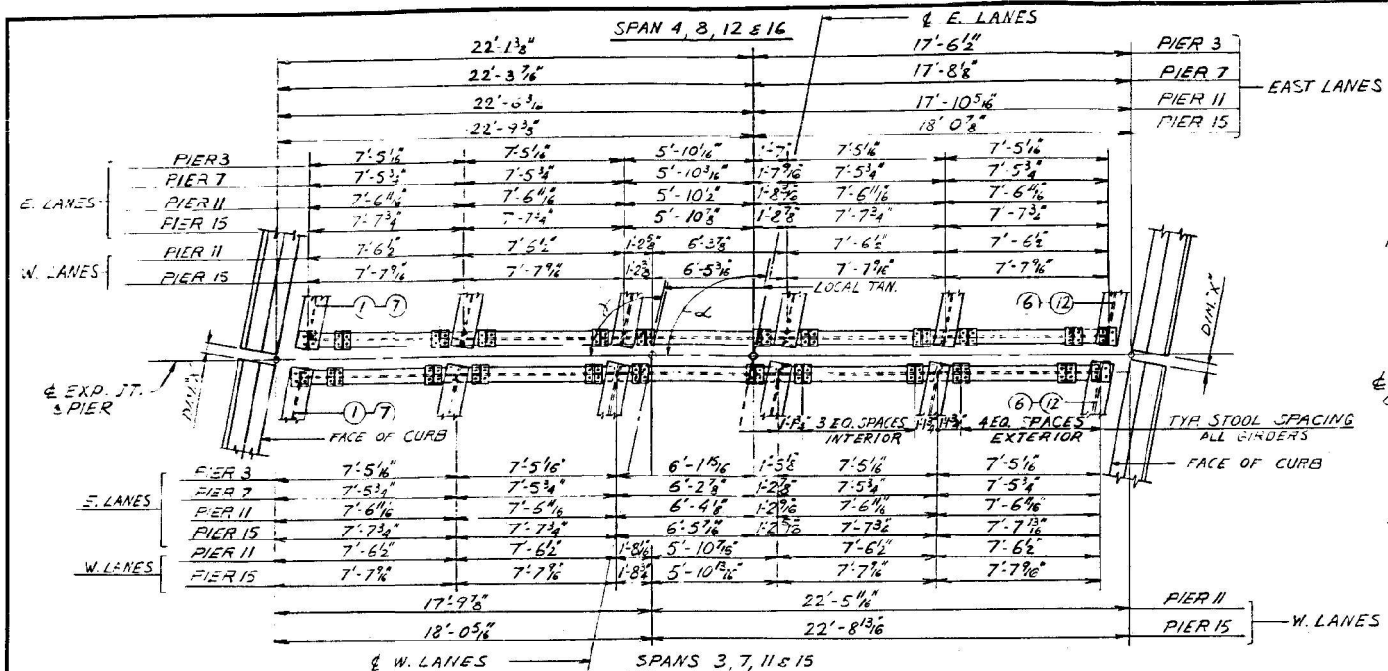 SPAN 4, 8, 12 & 16
℄ E. LANES
22'-1 3/8" 17'-6 1/2" PIER 3
22'-3 7/16" 17'-8 1/8" PIER 7
22'-6 3/16 17'-10 5/16" PIER 11
22'-9 3/8" 18'-0 7/8" PIER 15
EAST LANES
E. LANES
PIER 3 7'-5 1/16" 7'-5 1/16" 5'-10 1/16" 1'-7" 7'-5 1/16" 7'-5 1/16"
PIER 7 7'-5 3/4" 7'-5 3/4" 5'-10 3/16" 1'-7 9/16" 7'-5 3/4" 7'-5 3/4"
PIER 11 7'-6 11/16" 7'-6 11/16" 5'-10 1/2" 7'-6 11/16" 7'-6 11/16"
PIER 15 7'-7 3/4" 7'-7 3/4" 5'-10 7/8" 1'-8 7/8" 7'-7 3/4" 7'-7 3/4"
W. LANES
PIER 11 7'-6 1/2" 7'-6 1/2" 1'-2 5/8" 6'-3 7/8" 7'-6 1/2" 7'-6 1/2"
PIER 15 7'-7 9/16" 7'-7 9/16" 6'-5 3/16 7'-7 9/16" 7'-7 9/16"
LOCAL TAN.
1 7 γ α 6 12
DIM. "X"
DIM. "X"
℄ EXP. JT.
& PIER
1 7 6 12
FACE OF CURB
3 EQ. SPACES
INTERIOR
4 EQ. SPACES
EXTERIOR
TYP. STOOL SPACING
ALL GIRDERS
FACE OF CURB
E. LANES
PIER 3 7'-5 1/16" 7'-5 1/16" 6'-1 15/16 1'-5 1/8 7'-5 1/16" 7'-5 1/16"
PIER 7 7'-5 3/4" 7'-5 3/4" 6'-2 7/8" 7'-5 3/4" 7'-5 3/4"
PIER 11 7'-6 11/16" 7'-6 11/16 6'-4 1/8" 7'-6 11/16" 7'-6 11/16"
PIER 15 7'-7 3/4" 7'-7 3/4" 6'-5 7/16" 7'-7 3/4" 7'-7 13/16"
W. LANES
PIER 11 7'-6 1/2" 7'-6 1/2" 1'-8 1/16 5'-10 7/16" 7'-6 1/2" 7'-6 1/2"
PIER 15 7'-7 9/16" 7'-7 9/16" 1'-8 3/4" 5'-10 13/16" 7'-7 9/16" 7'-7 9/16"
17'-9 7/8" 22'-5 11/16" PIER 11
18'-0 5/16" 22'-8 13/16 PIER 15
W. LANES
℄ W. LANES
SPANS 3, 7, 11 & 15